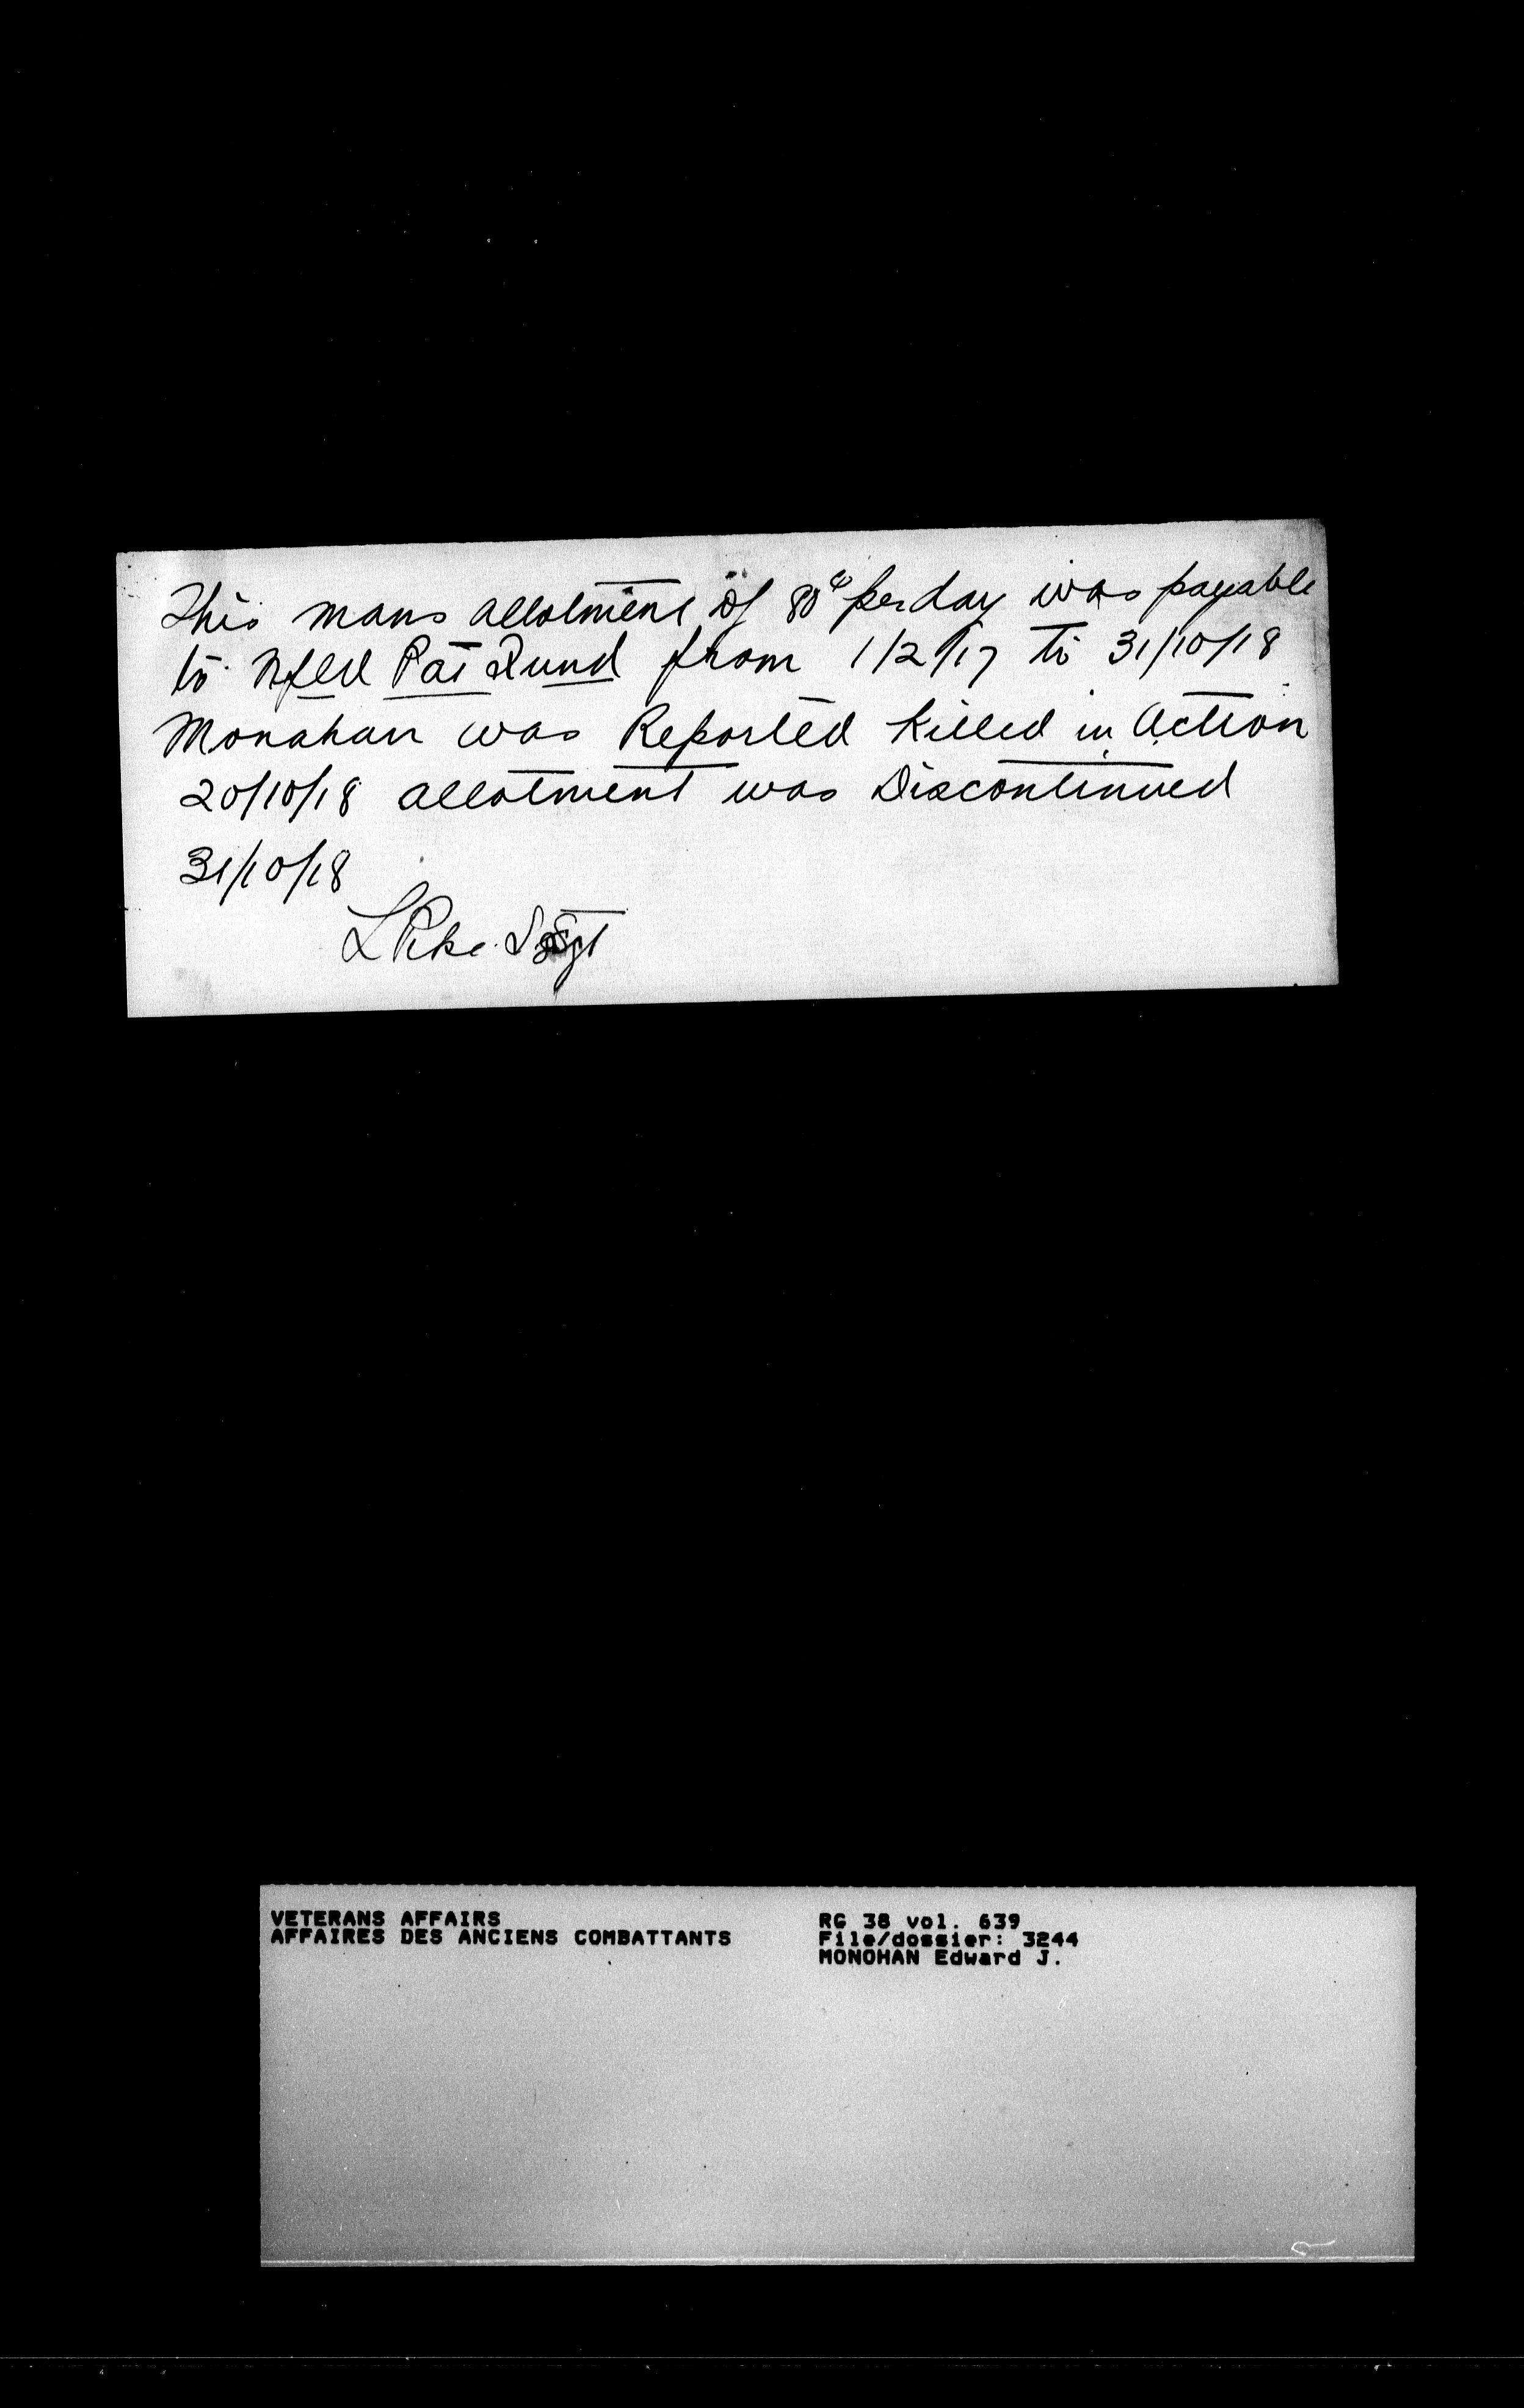 This mans allotment of 80¢ per day was payable
to Nfld Pat Fund from 1/2/17 to 31/10/18
Monahan was Reported Killed in Action
20/10/18 allotment was Discontinued
31/10/18
L Pike
VETERANS AFFAIRS
AFFAIRES DES ANCIENS COMBATTANTS
RG 38 vol. 639
File/dossier: 3244
MONOHAN Edward J.